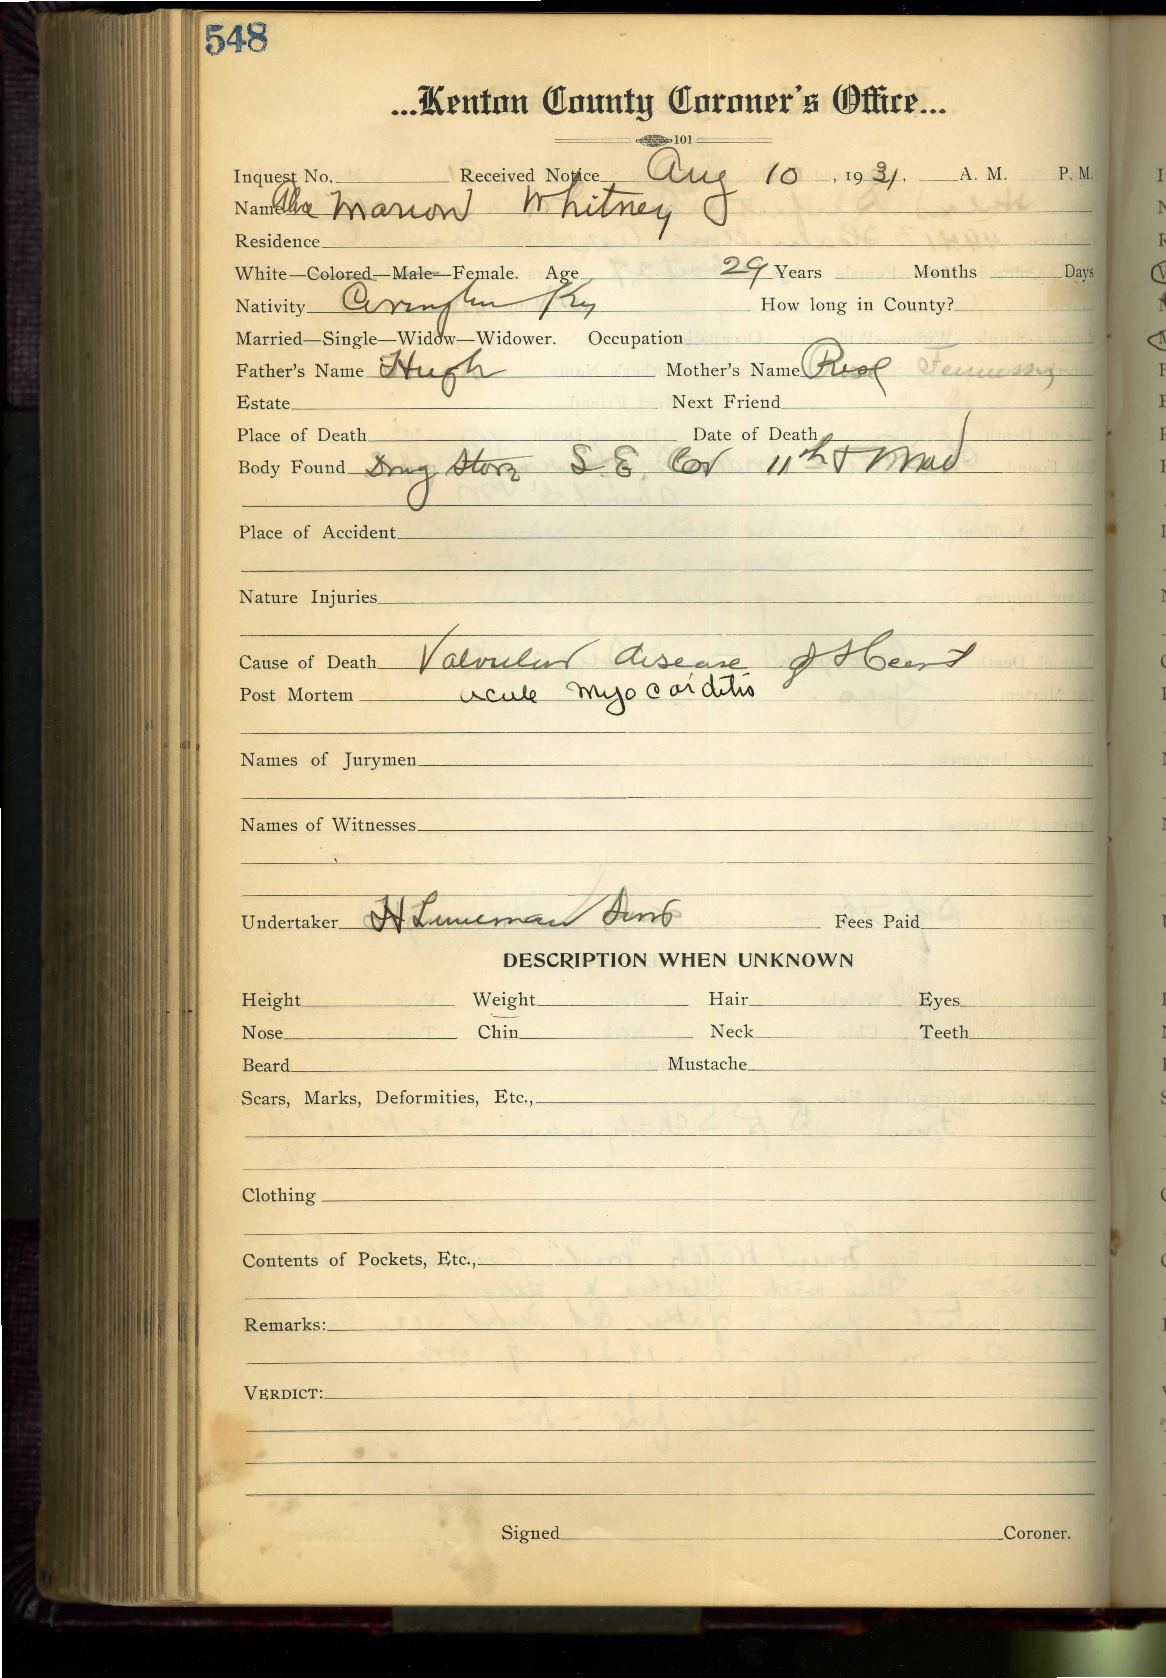 548
...Kenton County Coroner's Office...
101
Inquest No. Received Notice Aug 10, 1931. A. M. P. M.
Name Alva Marion Whitney
Residence
White—Colored—Male—Female. Age 29 Years Months Days
Nativity Covington Ky How long in County?
Married—Single—Widow—Widower. Occupation
Father's Name Hugh Mother's Name Rose Fennessy
Estate Next Friend
Place of Death Date of Death
Body Found Drug Store S. E. Cor 11th & Mad
Place of Accident
Nature Injuries
Cause of Death Valvular disease of Heart
Post Mortem acute myocarditis
Names of Jurymen
Names of Witnesses
Undertaker H Linneman Sons Fees Paid
DESCRIPTION WHEN UNKNOWN
Height Weight Hair Eyes
Nose Chin Neck Teeth
Beard Mustache
Scars, Marks, Deformities, Etc.,
Clothing
Contents of Pockets, Etc.,
Remarks:
VERDICT:
Signed Coroner.